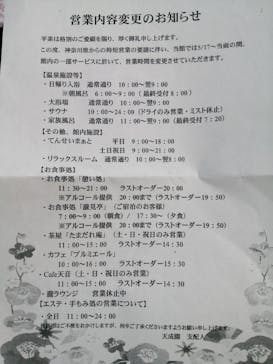 営業内容変更のお知らせ
平素は格別のご愛顧を賜り、厚く御礼申し上げます。
この度、神奈川県からの時短営業の要請に伴い、当館では5/17～当面の間、
館内の一部サービスに於いて、営業時間を変更させていただきます。
【温泉施設等】
・日帰り入浴 通常通り 10：00～翌9：00
※朝風呂 6：00～9：00（最終受付8：00）
・大浴場 通常通り 10：00～翌9：00
・サウナ 10：00～24：00（ドライのみ営業・ミスト休止）
・家族風呂 通常通り 11：00～翌9：00（最終受付 7：20）
【その他、館内施設】
・てんせいまぁと 平日 9：00～14：00
土日祝日 9：00～21：00
・リラックスルーム 通常通り 10：00～翌9：00
【お食事処】
・お食事処「憩い処」
11：30～21：00 ラストオーダー20：00
※アルコール提供 20：00まで（ラストオーダー19：50）
・お食事処「瀧見亭」（ご宿泊のお客様）
7：00～9：00（朝食）/ 17：30～（夕食）
※アルコール提供 20：00まで（ラストオーダー19：50）
・茶屋「たまだれ庵」（土・日・祝日のみ営業）
11：00～15：00 ラストオーダー14：30
・カフェ「プルミエール」
10：00～15：00 ラストオーダー14：30
・Cafe天音（土・日・祝日のみ営業）
11：00～15：00 ラストオーダー14：30
・瀧ラウンジ 営業休止中
【エステ・手もみ処の営業について】
・全日 11：00～24：00
ご不便をおかけしますが、何卒ご了承くださいますようお願い申し上げます。
天成園 支配人